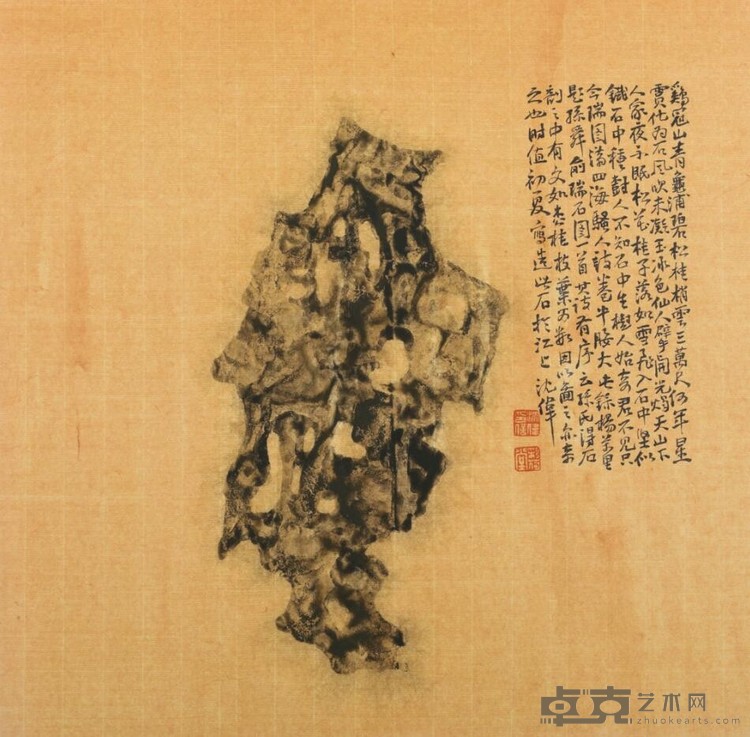 鷄冠山青龜浦碧松桂梢雲三萬尺何年星
賈化為石風吹未凝玉冰色仙人擘開光燭天山下
人家夜不眠松花桂子落如雪飛入石中堅似
鐵石中種樹人不知石中生樹人始奇君不見只
今瑞圖滿四海騷人詩卷牛腰大
題孫舜俞瑞石圖一首其詩有序云孫氏得石
剖之中有文如老桂枝葉可數因以圖之亦奇
之也時值初夏寫造此石於江上沈偉
卓克艺术网
zhuokearts.com